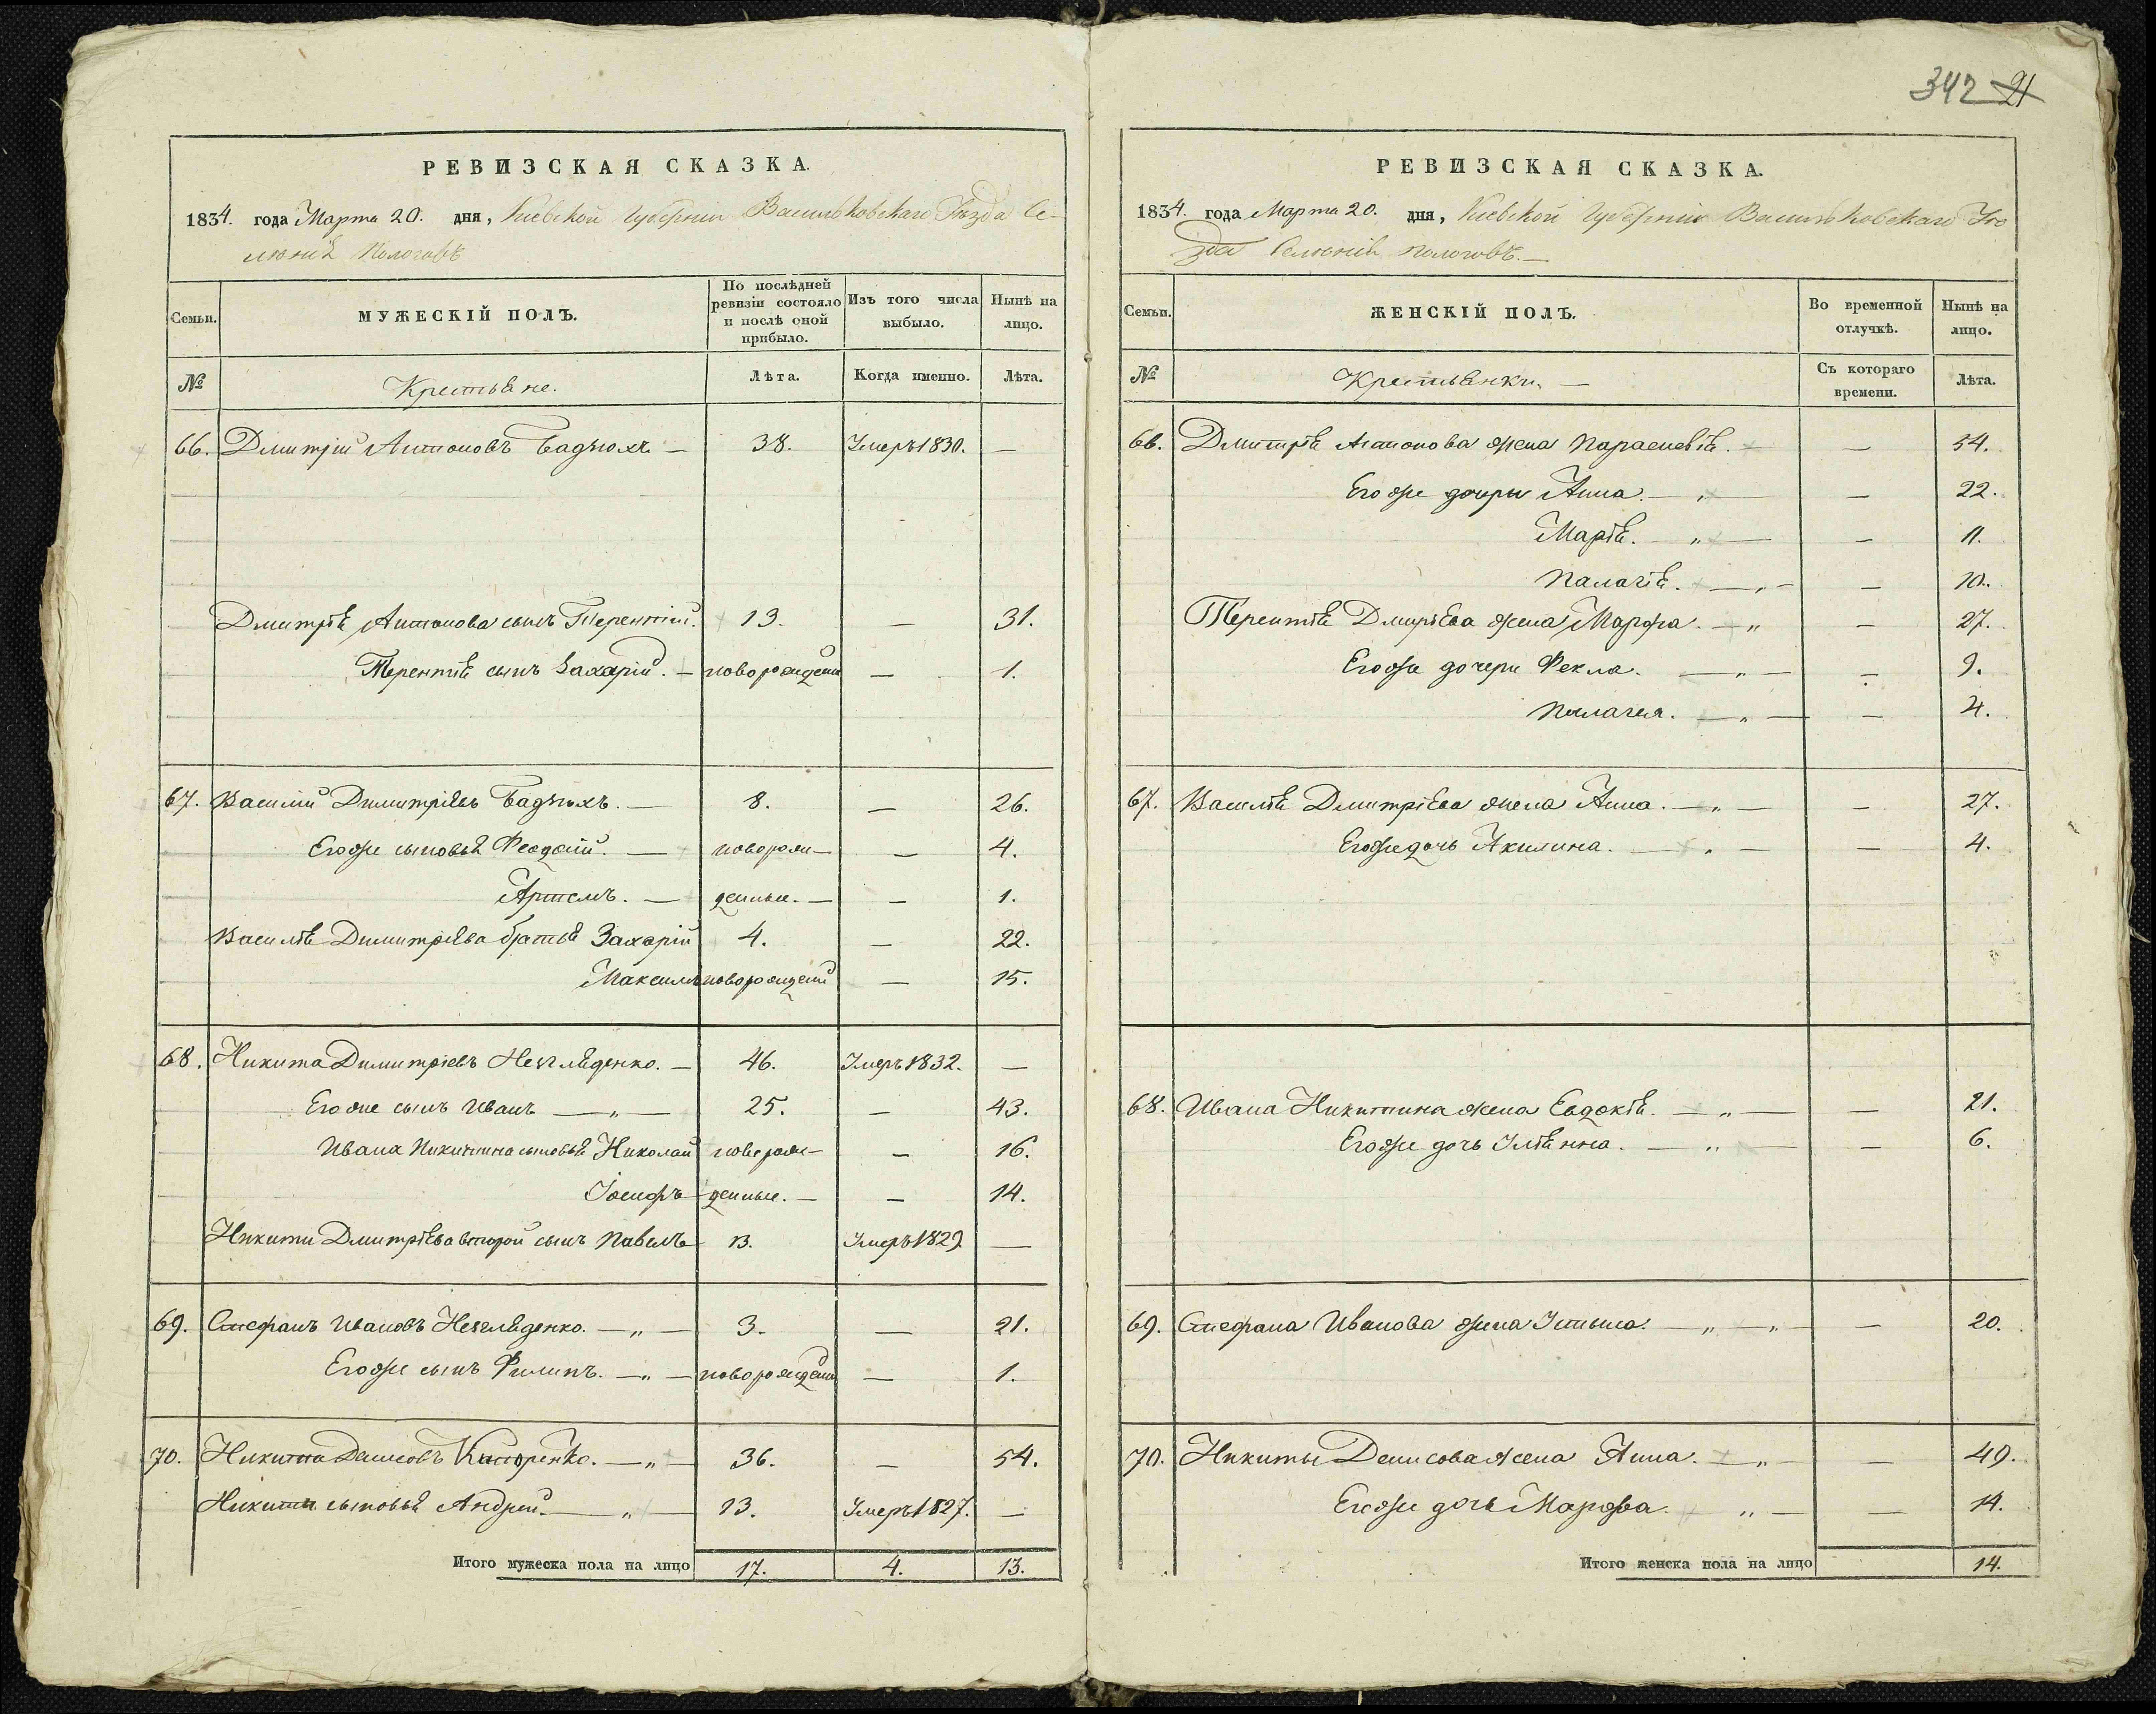 342 21
РЕВИЗСКАЯ СКАЗКА.
1834. года Марта 20. дня, Киевской Губернии Васильковскаго Уѣзда Се-
ленія Пологовъ
Семьи.
МУЖЕСКІЙ ПОЛЪ.
По послѣдней ревизіи состояло и послѣ оной прибыло.
Изъ того числа выбыло.
Нынѣ на лицо.
№
Крестьяне.
Лѣта.
Когда именно.
Лѣта.
66. Дмитрій Антоновъ 38. Умеръ 1830. —
Дмитрія Антонова сынъ Терентій. 13. — 31.
Терентія сынъ Захарій. — новорожденный — 1.
67. Василий Димитріевъ — 8. — 26.
Его же сыновья Феодосій. — новорож- — 4.
Артемъ. — денные. — — 1.
Василія Димитріева братья Захарій 4. — 22.
Максимъ новорожденный — 15.
68. Никита Димитріевъ — 46. Умеръ 1832. —
Его же сынъ Иванъ — „ — 25. — 43.
Ивана Никитина сыновья Николай новорож- — 16.
Іосифъ денные. — — 14.
Никиты Дмитріева второй сынъ Павелъ 13. Умеръ 1829 —
69. Стефанъ Ивановъ — „ — 3. — 21.
Его же сынъ Филипъ. — „ — новорожденный — 1.
70. Никита Денисовъ — „ — 36. — 54.
Никиты сыновья Андрей. — „ — 13. Умеръ 1827. —
Итого мужеска пола на лицо 17. 4. 13.
РЕВИЗСКАЯ СКАЗКА.
1834. года Марта 20. дня, Киевской Губерніи Васильковскаго Уѣ
зда Селенія Пологовъ. —
Семьи.
ЖЕНСКІЙ ПОЛЪ.
Во временной отлучкѣ.
Нынѣ на лицо.
№
Крестьянки. —
Съ котораго времени.
Лѣта.
66. Дмитрія Антонова жена Параскевія. — — 54.
Его же дочери Анна. — „ — — 22.
Марія. — „ — — 11.
Палагія. — „ — — 10.
Терентія Дмиріева жена Марфа. — „ — 27.
Его же дочери Фекла. — „ — — 9.
Пелагея. — „ — — 4.
67. Василія Дмитріева жена Анна. — „ — — 27.
Его же дочь Акилина. — „ — — 4.
68. Ивана Никитина жена Евдокія. — „ — — 21.
Его же дочь Уліянна. — „ — — 6.
69. Стефана Иванова жена — „ — „ — — 20.
70. Никиты Денисова жена Анна. — „ — — 49.
Его же дочь Марфа. „ — — 14.
Итого женска пола на лицо 14.